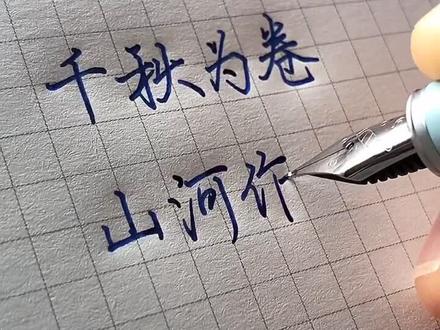 千秋为卷
山河作